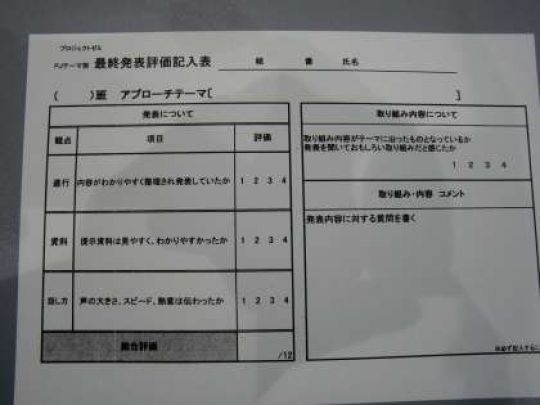 プロジェクトゼミ
PJテーマ別 最終発表評価記入表 組 番 氏名
( )班 アプローチテーマ[ ]
発表について
観点 項目 評価
進行 内容がわかりやすく整理され発表していたか 1 2 3 4
資料 提示資料は見やすく、わかりやすかったか 1 2 3 4
話し方 声の大きさ、スピード、熱意は伝わったか 1 2 3 4
総合評価 /12
取り組み内容について
取り組み内容がテーマに沿ったものとなっているか
発表を聞いておもしろい取り組みだと感じたか
1 2 3 4
取り組み・内容 コメント
発表内容に対する質問を書く
※必ず記入する